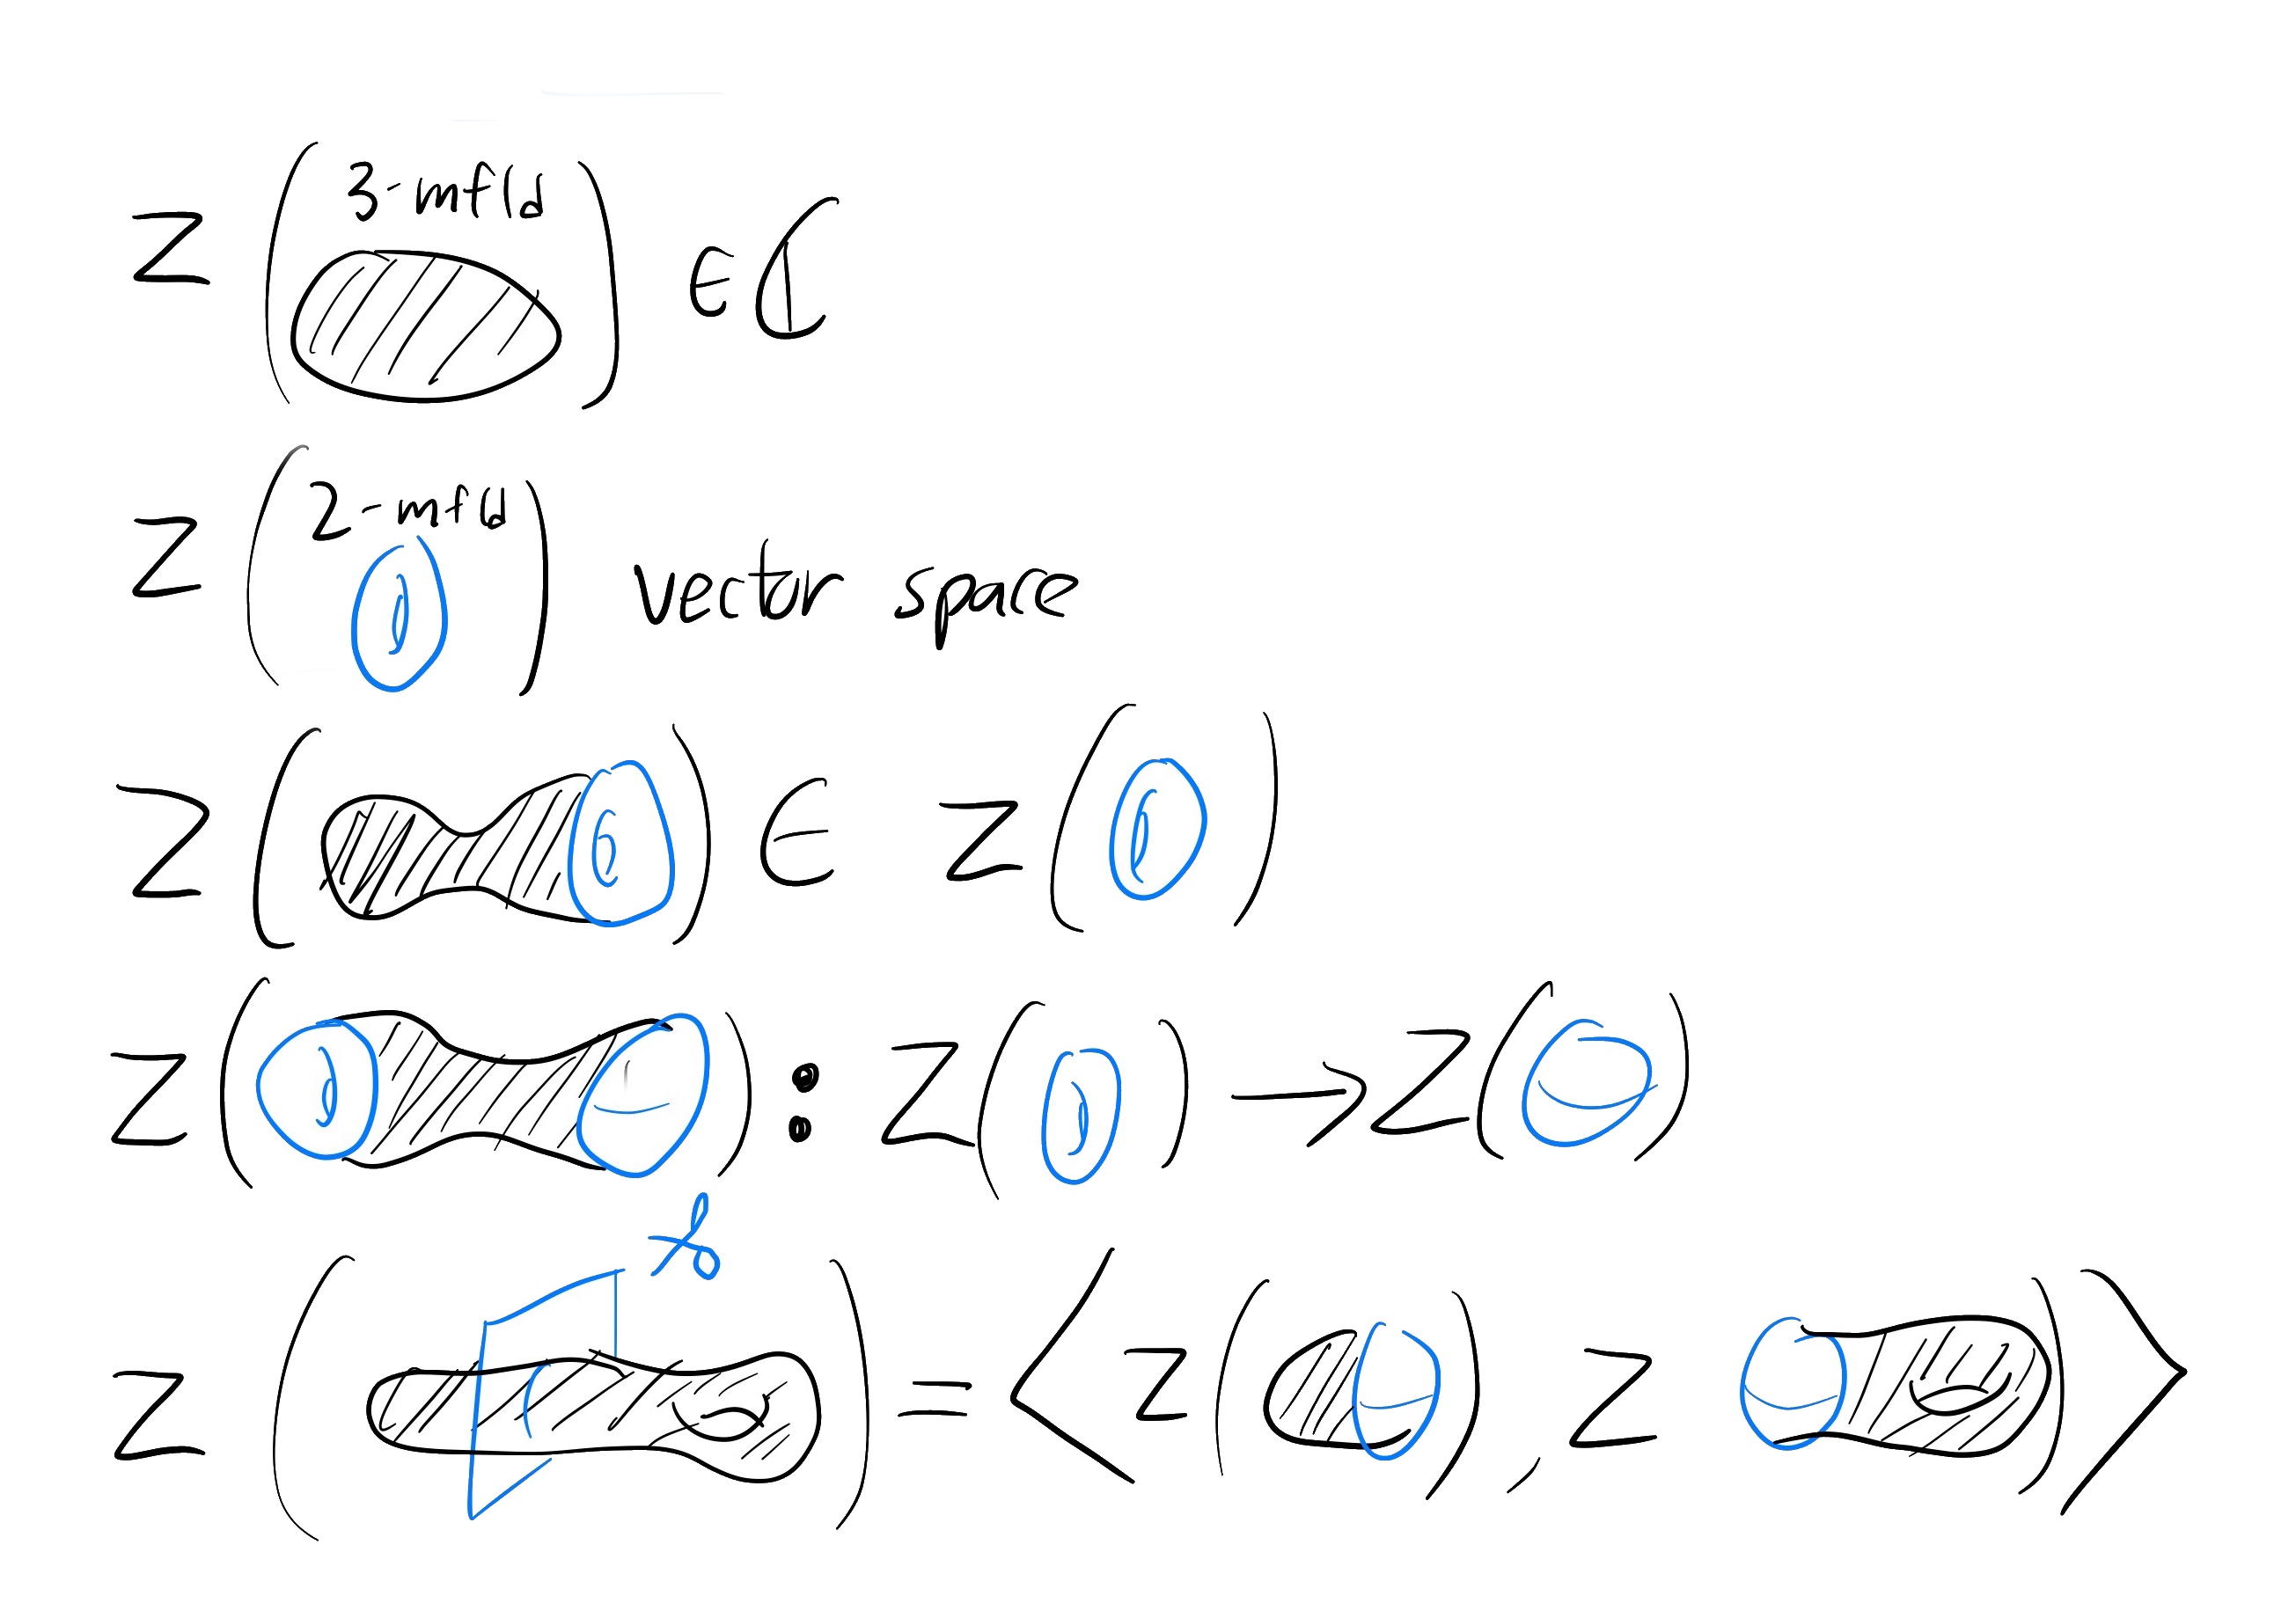 Z ( 3-mfld ) ∈ ℂ
Z ( 2-mfld ) vector space
Z ( ) ∈ Z ( )
Z ( ) : Z ( ) → Z ( )
Z ( ) = ⟨ Z ( ) , Z ( ) ⟩